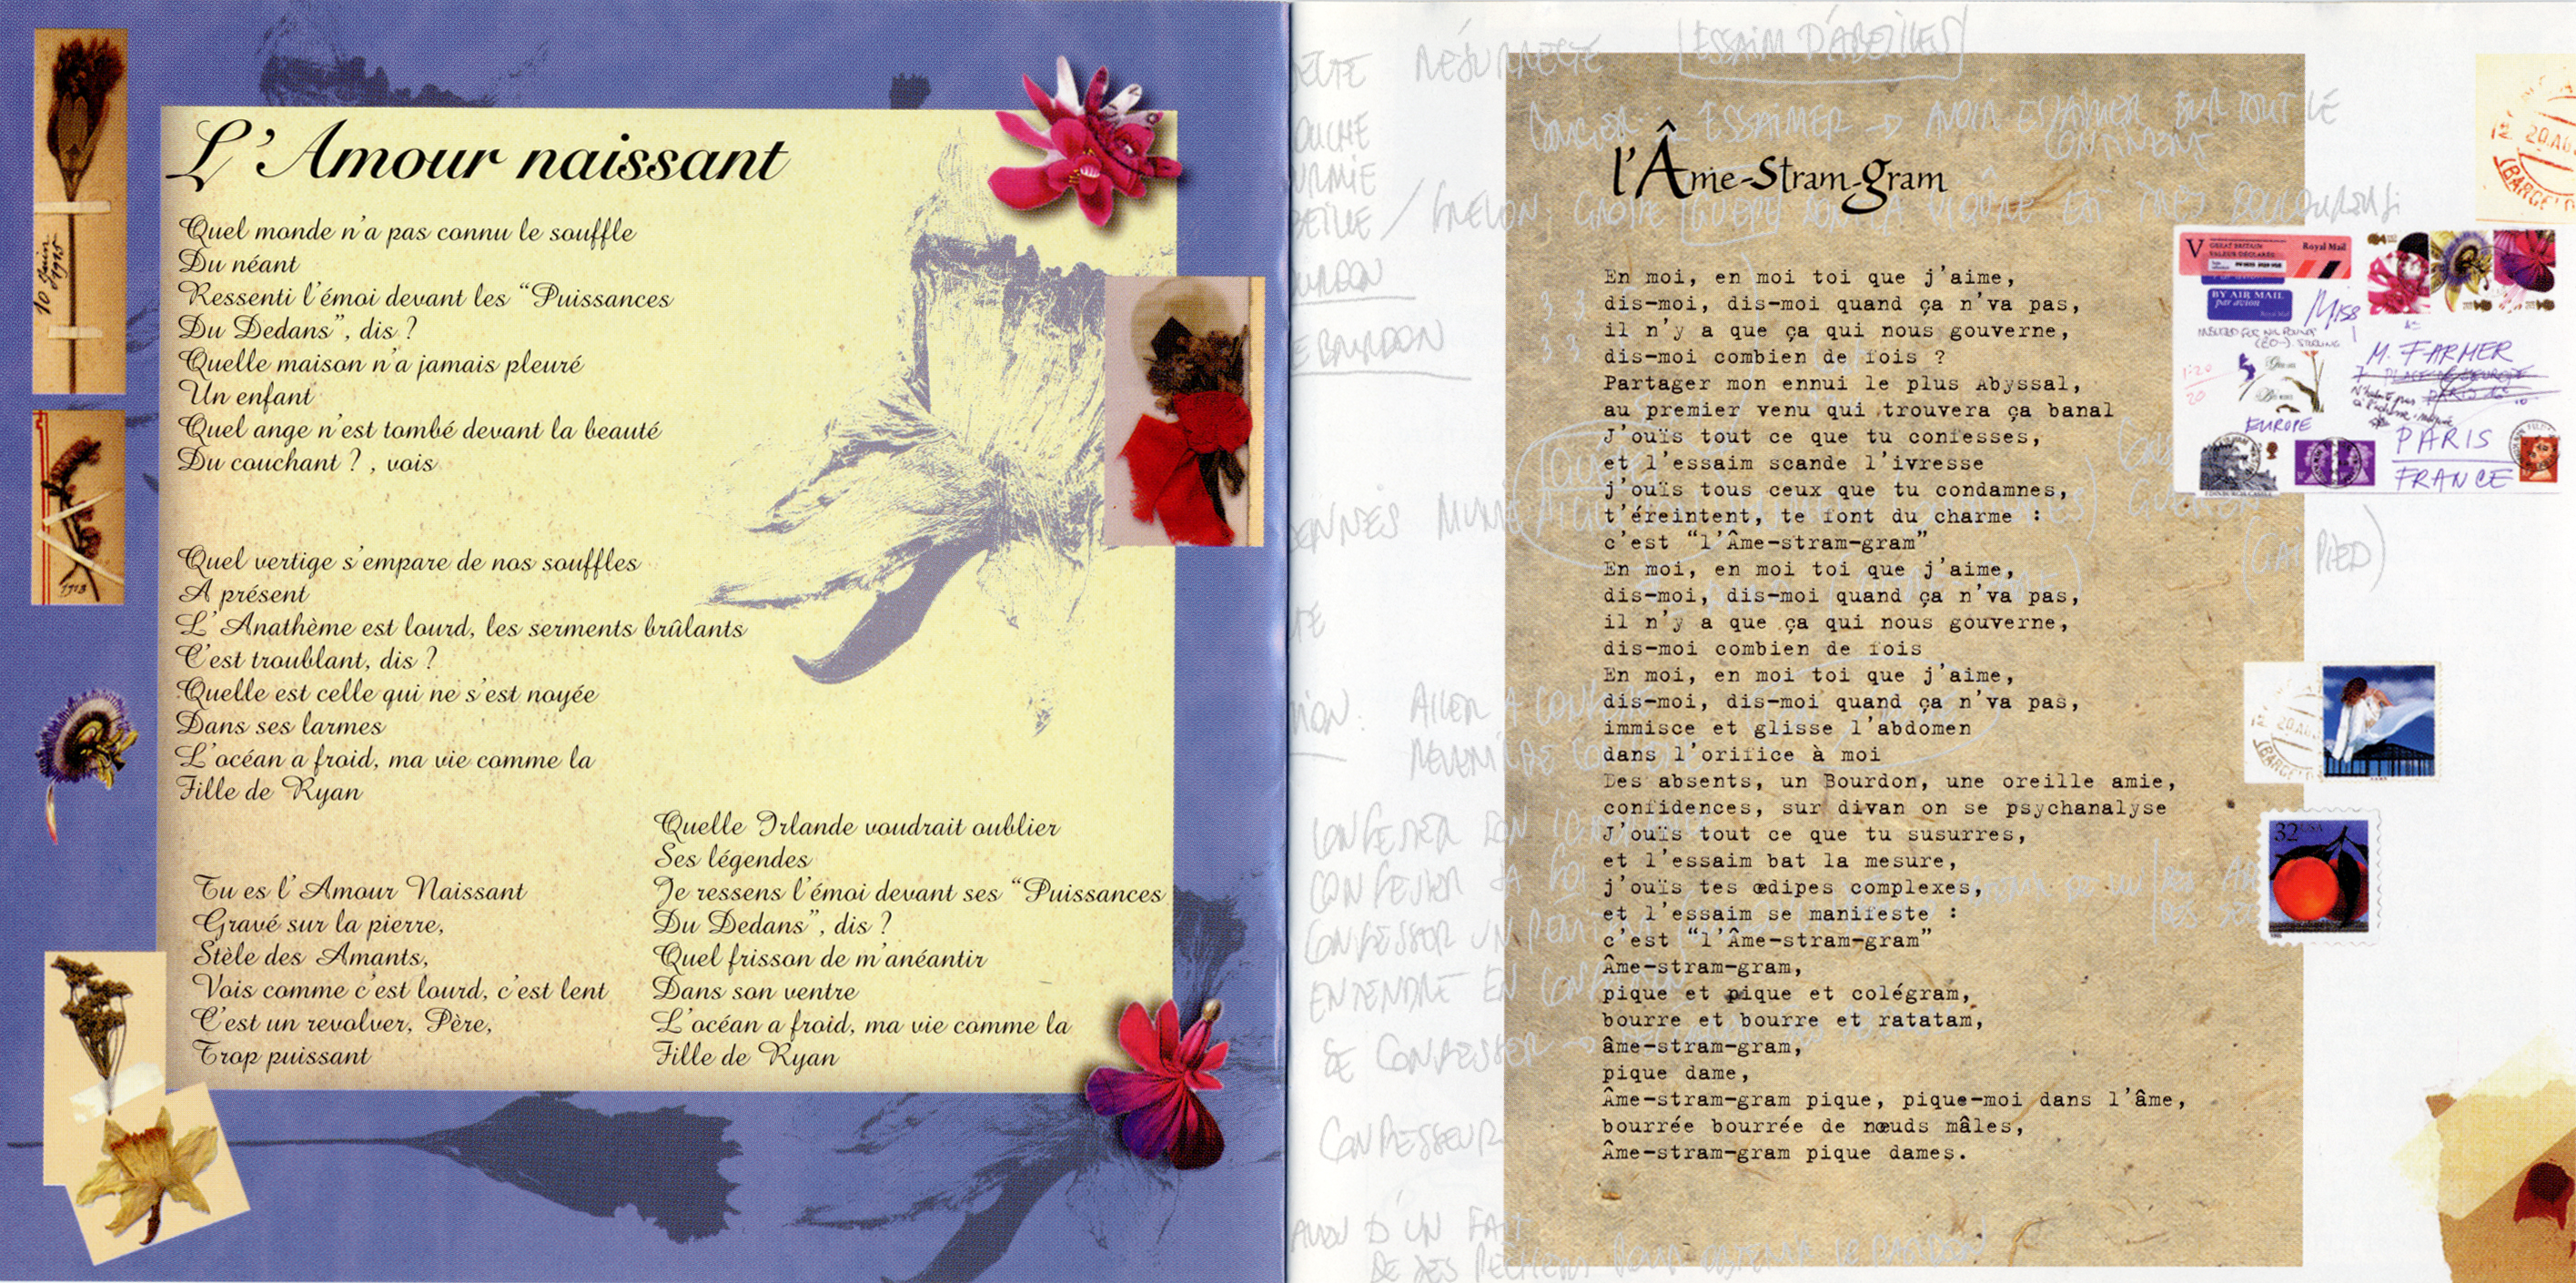 L'Amour naissant
Quel monde n'a pas connu le souffle
Du néant
Ressenti l'émoi devant les “Puissances
Du Dedans”, dis ?
Quelle maison n'a jamais pleuré
Un enfant
Quel ange n'est tombé devant la beauté
Du couchant ? , vois
Quel vertige s'empare de nos souffles
A présent
L'Anathème est lourd, les serments brûlants
C'est troublant, dis ?
Quelle est celle qui ne s'est noyée
Dans ses larmes
L'océan a froid, ma vie comme la
Fille de Ryan
Tu es l'Amour Naissant
Gravé sur la pierre,
Stèle des Amants,
Vois comme c'est lourd, c'est lent
C'est un revolver, Père,
Trop puissant
Quelle Irlande voudrait oublier
Ses légendes
Je ressens l'émoi devant ses “Puissances
Du Dedans”, dis ?
Quel frisson de m'anéantir
Dans son ventre
L'océan a froid, ma vie comme la
Fille de Ryan
10 Juin 1995
ESSAIM D'ABEILLES
ESSAIMER → AVOIR ESSAIMER SUR TOUT LE
CONTINENT
l'Âme-Stram-Gram
En moi, en moi toi que j'aime,
dis-moi, dis-moi quand ça n'va pas,
il n'y a que ça qui nous gouverne,
dis-moi combien de fois ?
Partager mon ennui le plus Abyssal,
au premier venu qui trouvera ça banal
J'ouïs tout ce que tu confesses,
et l'essaim scande l'ivresse
j'ouïs tous ceux que tu condamnes,
t'éreintent, te font du charme :
c'est “l'Âme-stram-gram”
En moi, en moi toi que j'aime,
dis-moi, dis-moi quand ça n'va pas,
il n'y a que ça qui nous gouverne,
dis-moi combien de fois
En moi, en moi toi que j'aime,
dis-moi, dis-moi quand ça n'va pas,
immisce et glisse l'abdomen
dans l'orifice à moi
Des absents, un Bourdon, une oreille amie,
confidences, sur divan on se psychanalyse
J'ouïs tout ce que tu susurres,
et l'essaim bat la mesure,
j'ouïs tes œdipes complexes,
et l'essaim se manifeste :
c'est “l'Âme-stram-gram”
Âme-stram-gram,
pique et pique et colégram,
bourre et bourre et ratatam,
âme-stram-gram,
pique dame,
Âme-stram-gram pique, pique-moi dans l'âme,
bourrée bourrée de nœuds mâles,
Âme-stram-gram pique dames.
LE BOURDON
SE CONFESSER →
CONFESSEUR
V
GREAT BRITAIN
VALEUR DÉCLARÉE
Royal Mail
BY AIR MAIL
par avion
Royal Mail
M. FARMER
EUROPE
PARIS
FRANCE
32 USA